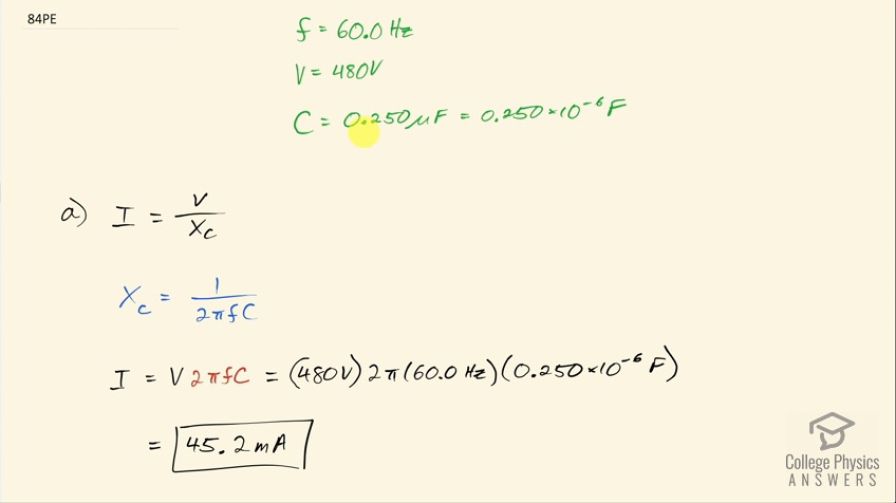 84PE
f = 60.0 Hz
V = 480V
C = 0.250 μF = 0.250×10⁻⁶ F
a) I = V/X_C
X_C = 1/2πfC
I = V 2πfC = (480V) 2π (60.0 Hz)(0.250×10⁻⁶ F)
= 45.2 mA
College Physics
ANSWERS